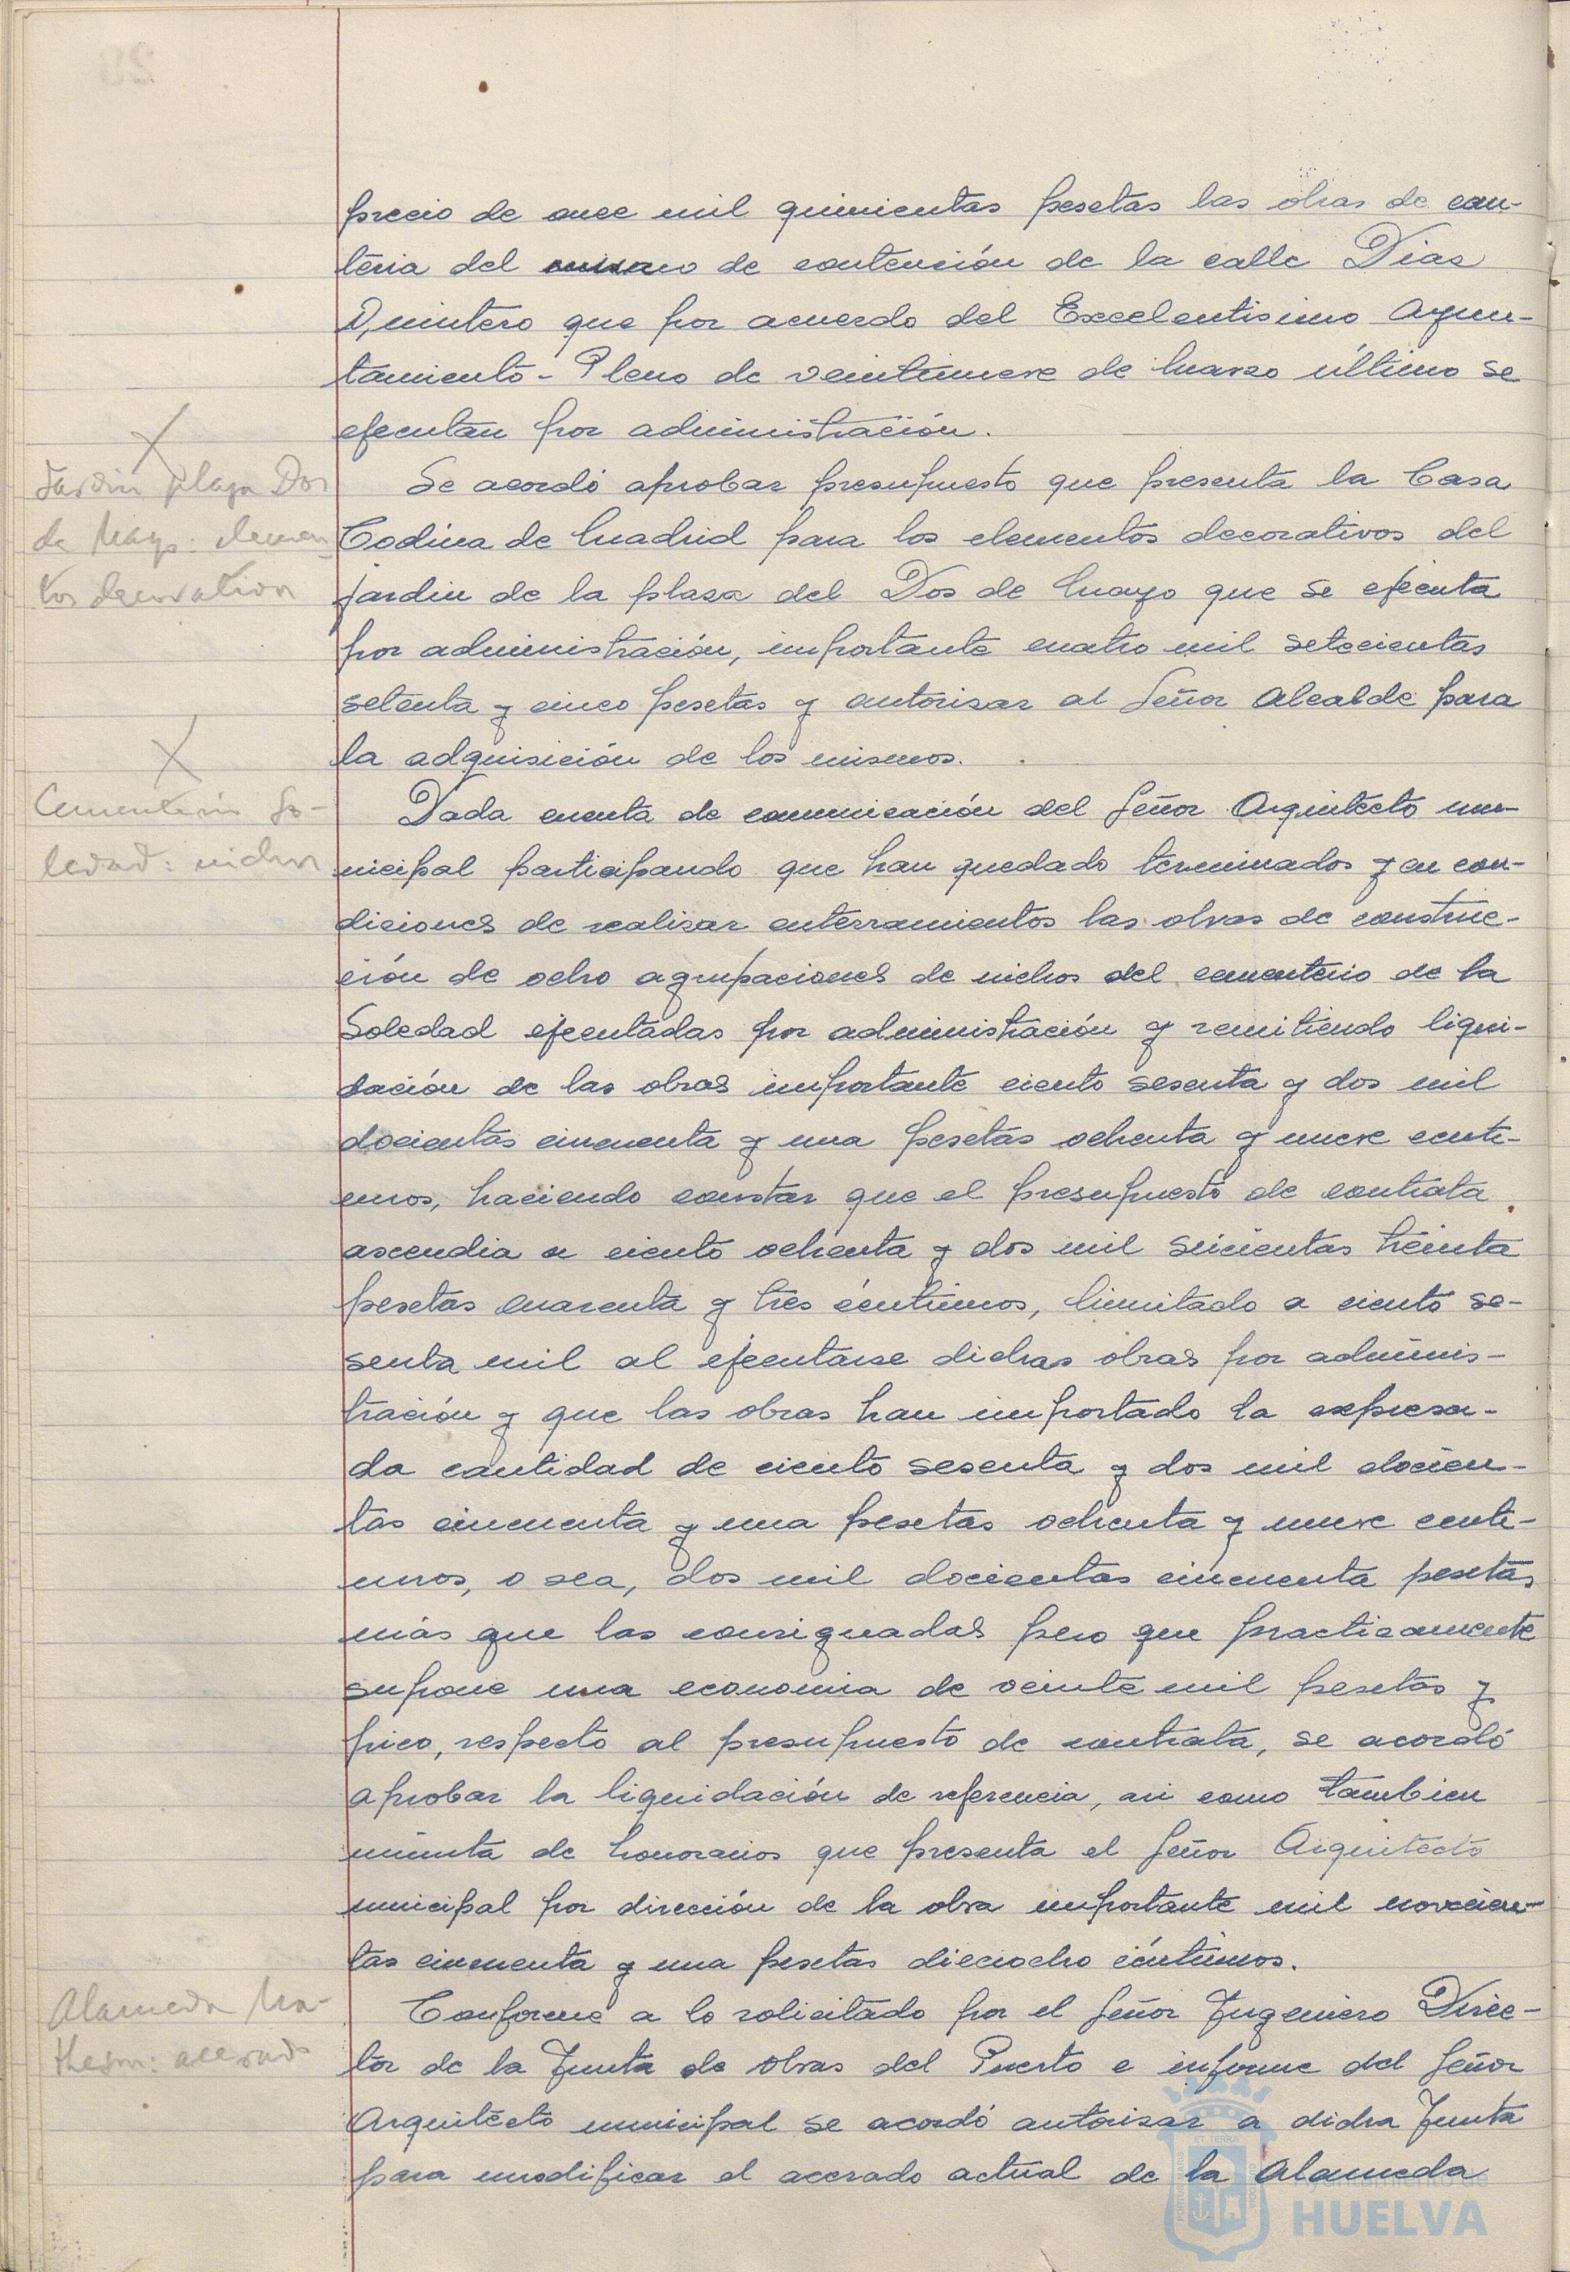 precio de once mil quinientas pesetas las obras de can-
tería del muro de contención de la calle Díaz
Quintero que por acuerdo del Excelentisimo Ayun-
tamiento-Pleno de veintinueve de Marzo último se
ejecutan por administración.
Jardin plaza Dos
de Mayo: elemen
tos decorativos
Se acordó aprobar presupuesto que presenta la Casa
Codina de Madrid para los elementos decorativos del
jardin de la plaza del Dos de Mayo que se ejecuta
por administración, importante cuatro mil setecientas
setenta y cinco pesetas y autorizar al Señor Alcalde para
la adquisición de los mismos.
Cementerio So-
ledad: nichos
Dada cuenta de comunicación del Señor Arquitecto mu-
nicipal participando que han quedado terminados y en con-
diciones de realizar enterramientos las obras de construc-
ción de ocho agrupaciones de nichos del cementerio de la
Soledad ejecutadas por administración y remitiendo liqui-
dación de las obras importante ciento sesenta y dos mil
docientas cincuenta y una pesetas ochenta y nueve centi-
mos, haciendo constar que el presupuesto de contrata
ascendia a ciento ochenta y dos mil seicientas treinta
pesetas cuarenta y tres céntimos, limitado a ciento se-
senta mil al ejecutarse dichas obras por adminis-
tración y que las obras han importado la expresa-
da cantidad de ciento sesenta y dos mil docien-
tas cincuenta y una pesetas ochenta y nueve centi-
mos, o sea, dos mil docientas cincuenta pesetas
más que las consignadas pero que practicamente
supone una economia de veinte mil pesetas y
pico, respecto al presupuesto de contrata, se acordó
aprobar la liquidación de referencia, asi como tambien
minuta de honorarios que presenta el Señor Arquitecto
municipal por dirección de la obra importante mil novecien-
tas cincuenta y una pesetas dieciocho céntimos.
Alameda Ma-
theson: acerado
Conforme a lo solicitado por el Señor Ingeniero Direc-
tor de la Junta de Obras del Puerto e informe del Señor
Arquitecto municipal se acordó autorizar a dicha Junta
para modificar el acerado actual de la Alameda
Ayuntamiento de
HUELVA